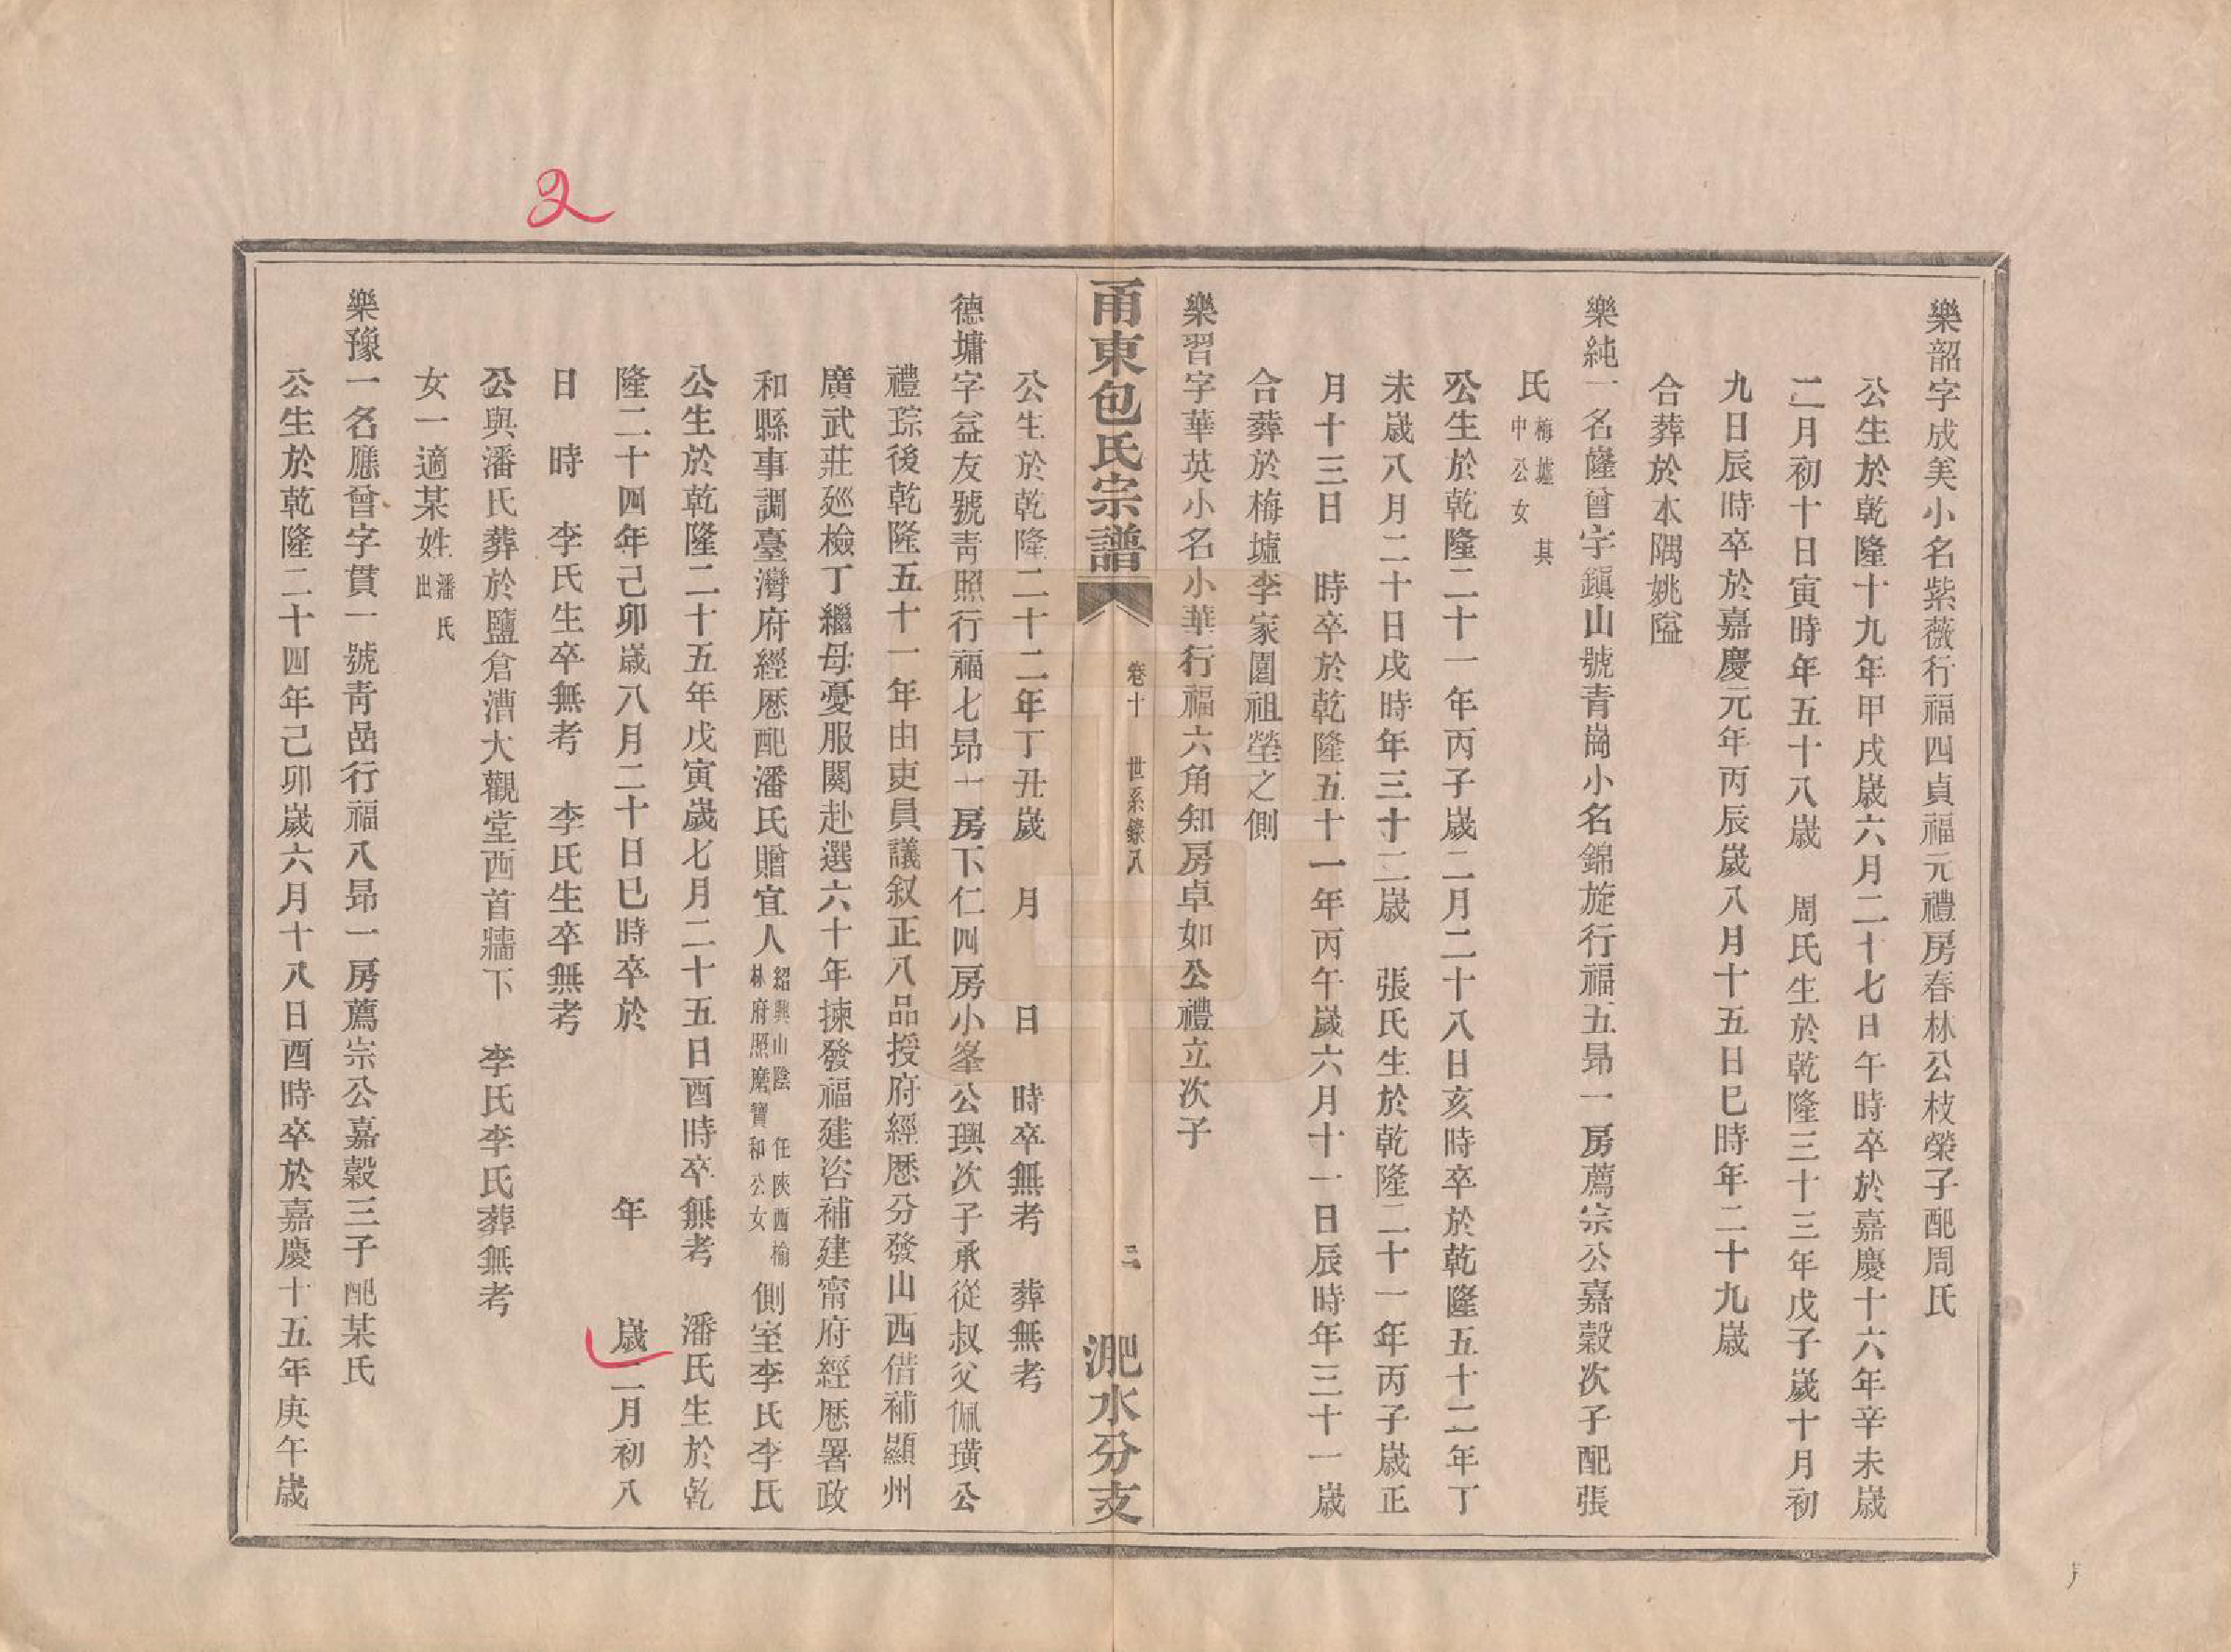 樂韶字成美小名紫薇行福四貞福元禮房春林公枝榮子配周氏
公生於乾隆十九年甲戌歲六月二十七日午時卒於嘉慶十六年辛未歲
二月初十日寅時年五十八歲 周氏生於乾隆三十三年戊子歲十月初
九日辰時卒於嘉慶元年丙辰歲八月十五日巳時年二十九歲
合葬於本隅姚隘
樂純一名隆曾字鎮山號青崗小名錦旋行福五昴一房薦宗公嘉穀次子配張
氏梅墟 其
中公女
公生於乾隆二十一年丙子歲二月二十八日亥時卒於乾隆五十二年丁
未歲八月二十日戌時年三十二歲 張氏生於乾隆二十一年丙子歲正
月十三日 時卒於乾隆五十一年丙午歲六月十一日辰時年三十一歲
合葬於梅墟李家園祖塋之側
樂習字華英小名小華行福六角知房卓如公禮立次子
甬東包氏宗譜
卷十 世系錄八
二
淝水分支
公生於乾隆二十二年丁丑歲 月 日 時卒無考 葬無考
德墉字益友號靑照行福七昴一房下仁四房小峯公璵次子承從叔父佩璜公
禮琮後乾隆五十一年由吏員議叙正八品授府經歷分發山西借補顯州
廣武莊廵檢丁繼母憂服闋赴選六十年揀發福建咨補建甯府經歷署政
和縣事調臺灣府經歷配潘氏贈宜人紹興山陰 任陝西榆
林府照磨寶和公女側室李氏李氏
公生於乾隆二十五年戊寅歲七月二十五日酉時卒無考 潘氏生於乾
隆二十四年己卯歲八月二十日巳時卒於 年 歲二月初八
日 時 李氏生卒無考 李氏生卒無考
公與潘氏葬於鹽倉漕大觀堂西首牆下 李氏李氏葬無考
女一適某姓潘氏
出
樂豫一名應曾字貫一號靑嵒行福八昴一房薦宗公嘉穀三子配某氏
公生於乾隆二十四年己卯歲六月十八日酉時卒於嘉慶十五年庚午歲
2